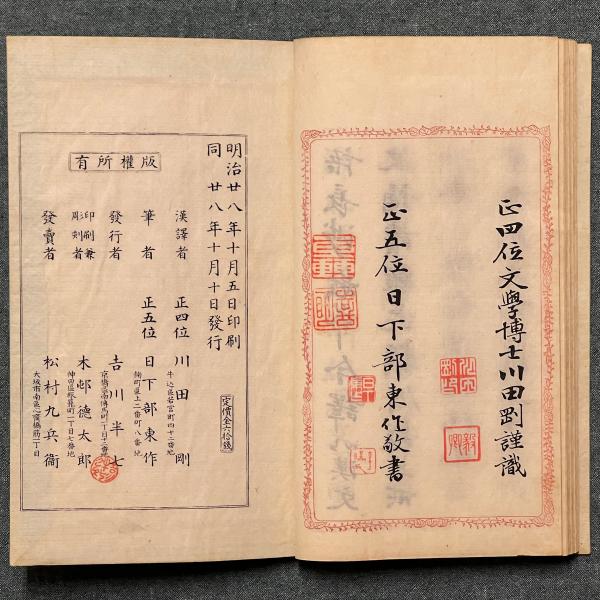 正四位文學博士川田剛謹識
正五位日下部東作敬書
明治廿八年十月五日印刷
同廿八年十月十日發行
定價金六拾錢
版權所有
漢譯者 正四位 川田剛
牛込區若宮町四十二番地
筆者 正五位 日下部東作
麹町區上二番町八番地
發行者 吉川半七
京橋區南傳馬町一丁目十二番地
印刷兼彫刻者 木邨德太郎
神田區裏猿樂町一丁目七番地
發賣者 松村九兵衞
大坂市南區心齋橋筋一丁目